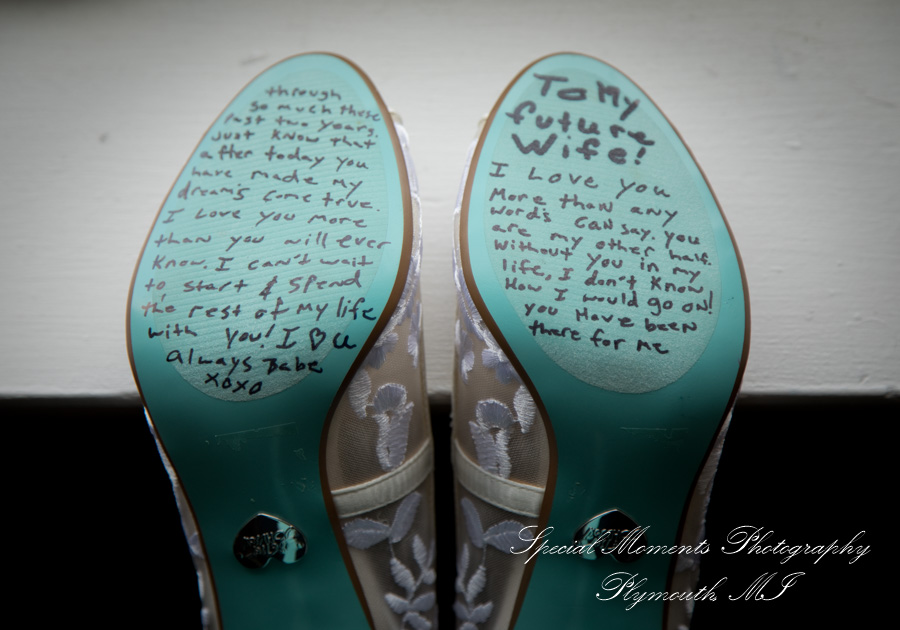 To My
future
Wife!
I Love you
More than any
words can say. you
are my other half.
Without you in my
life, I don't know
How I would go on!
you Have been
there for me
through
so much these
last two years.
Just know that
after today you
have made my
dreams come true.
I Love you more
than you will ever
know. I can't wait
to start & spend
the rest of my life
with you! I ♡ u
always Babe
xoxo
Special Moments Photography
Plymouth, MI